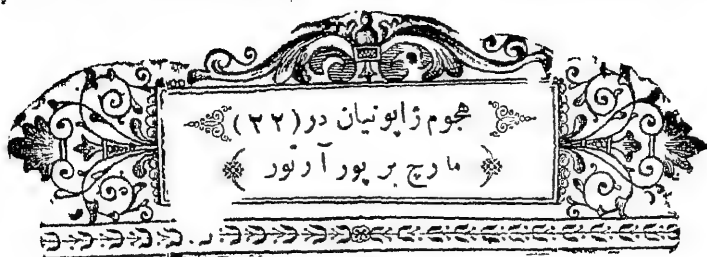 هجوم ژاپونیان در (۲۲)
مارچ بر پور آرتور